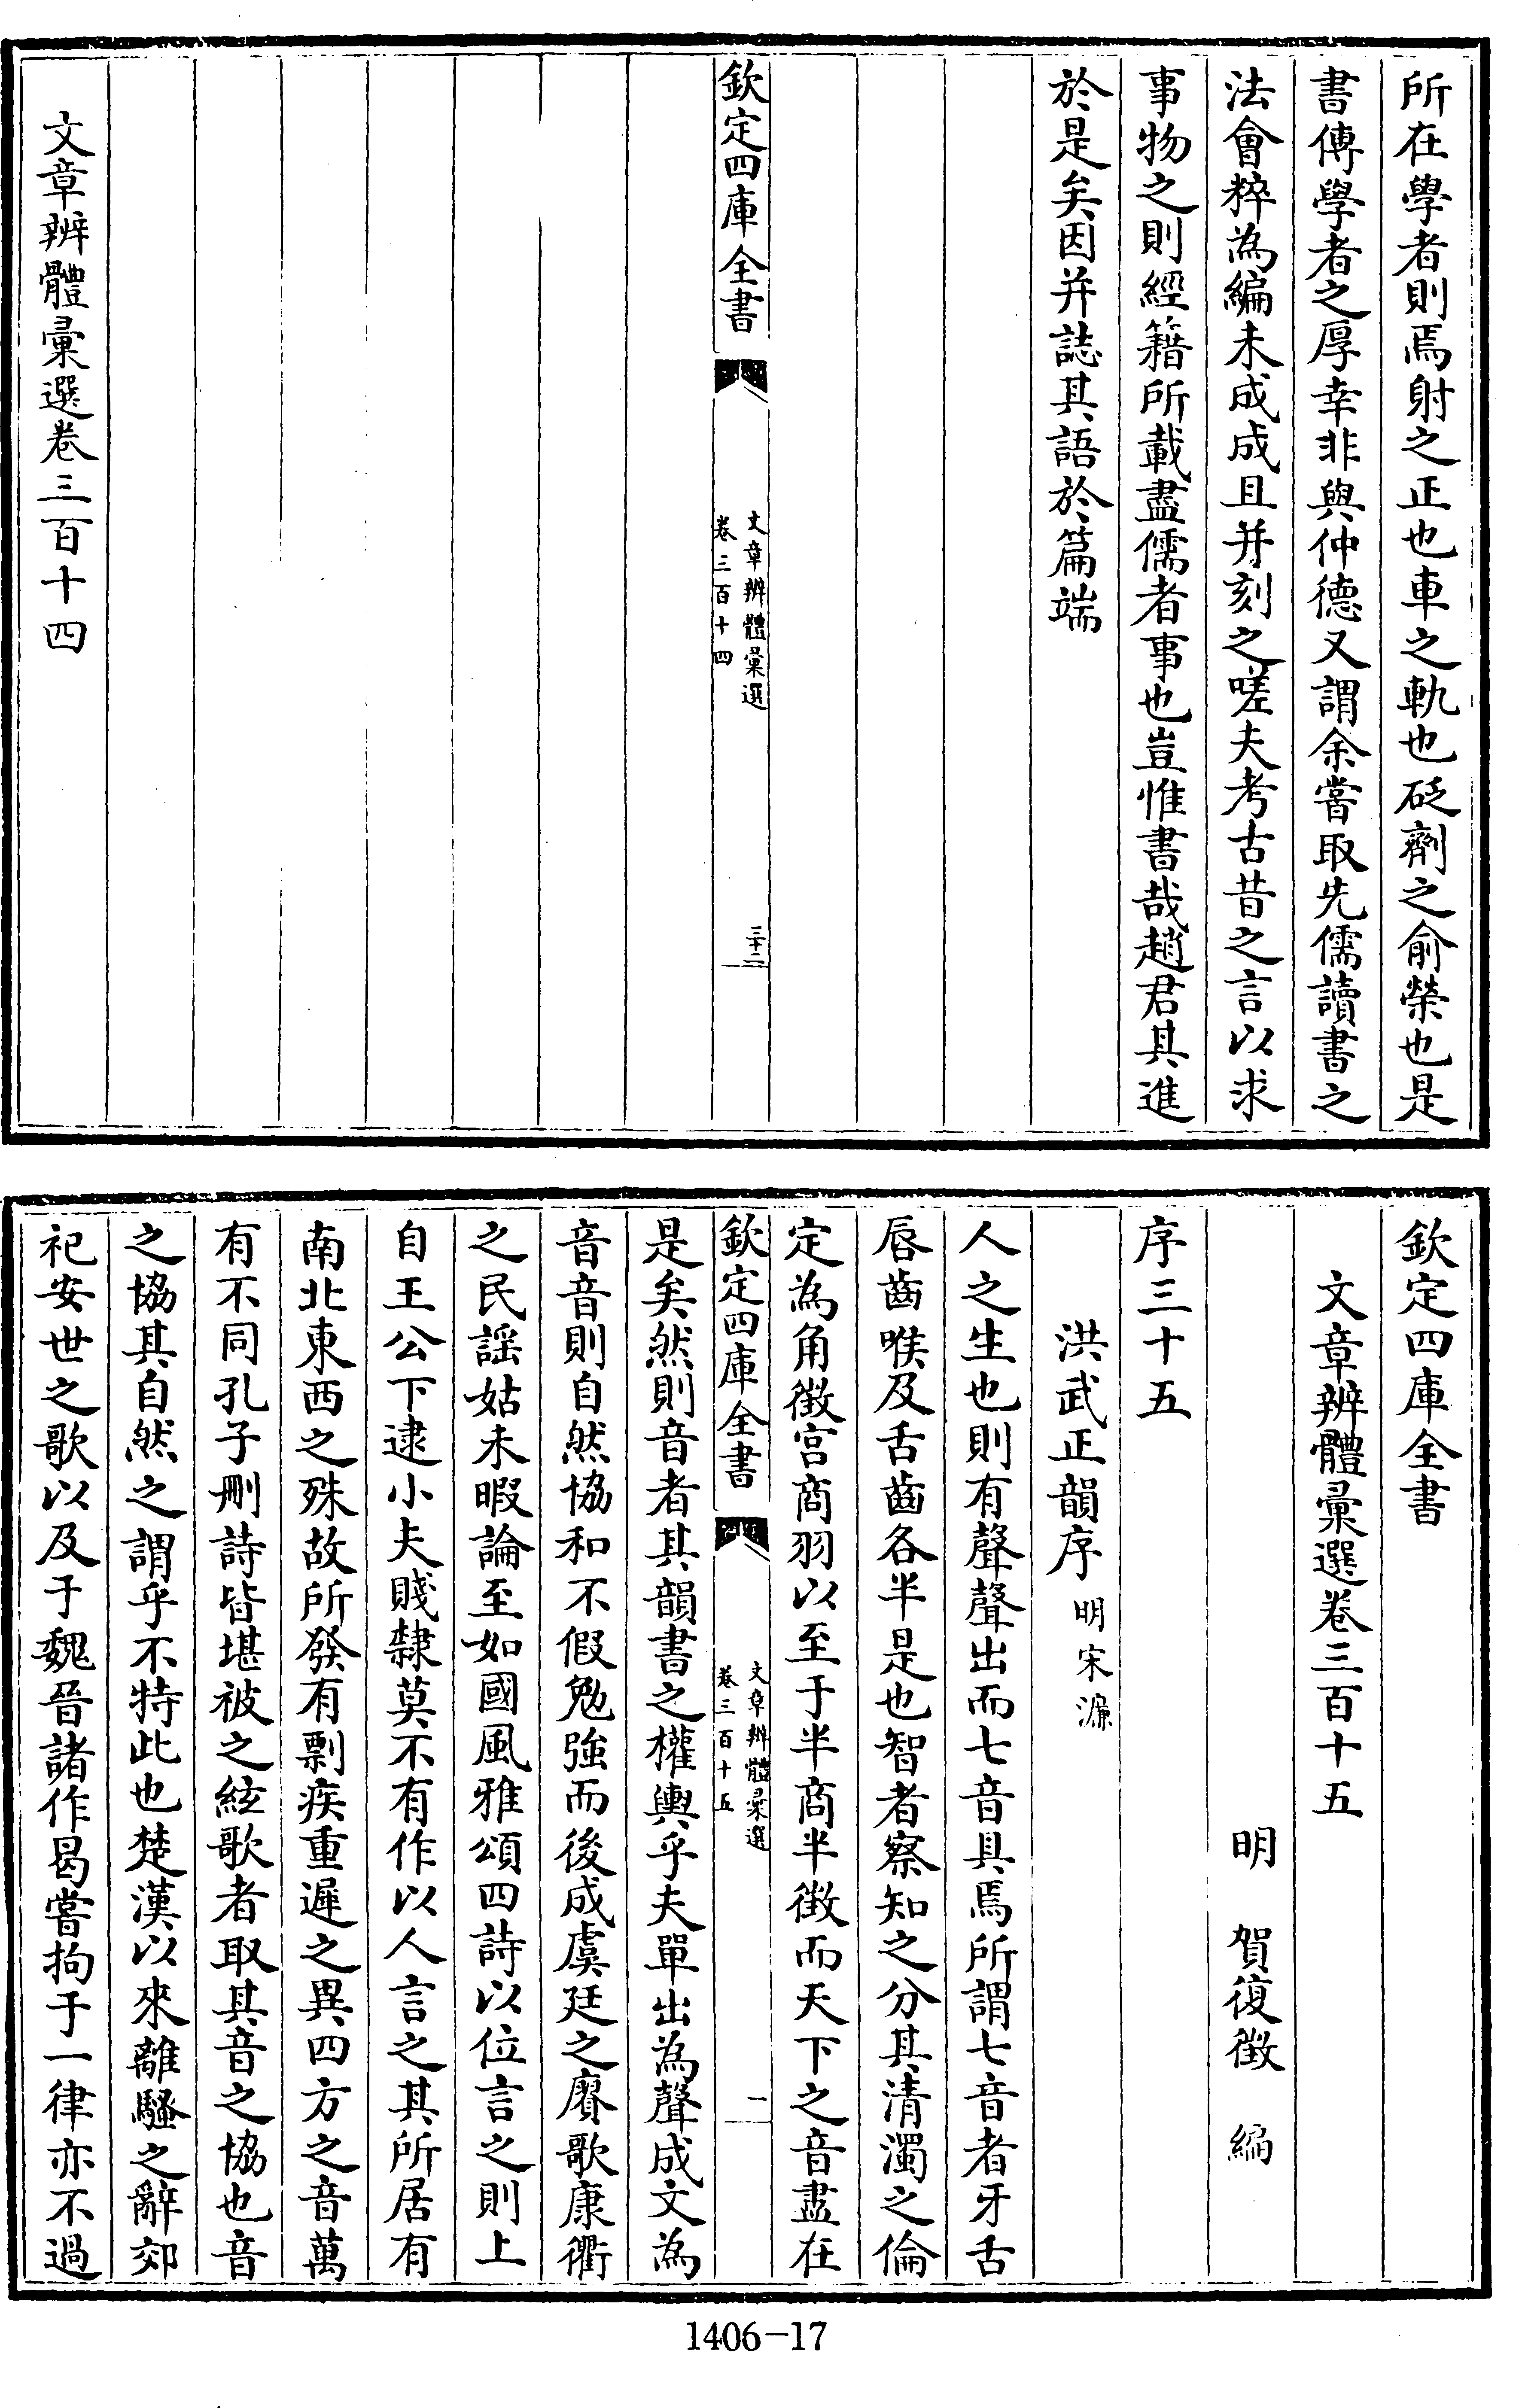 所在學者則焉射之正也車之軌也砭劑之俞榮也是
書傳學者之厚幸非與仲德又謂余嘗取先儒讀書之
法會粹為編未成成且并刻之嗟夫考古昔之言以求
事物之則經籍所載盡儒者事也豈惟書哉趙君其進
於是矣因并誌其語於篇端
欽定四庫全書
文章辨體彙選
卷三百十四
三十二
文章辨體彙選卷三百十四
欽定四庫全書
文章辨體彙選卷三百十五
明 賀復徵 編
序三十五
洪武正韻序 明宋濂
人之生也則有聲聲出而七音具焉所謂七音者牙舌
唇齒喉及舌齒各半是也智者察知之分其清濁之倫
定為角徵宮商羽以至于半商半徵而天下之音盡在
欽定四庫全書
文章辨體彙選
卷三百十五
一
是矣然則音者其韻書之權輿乎夫單出為聲成文為
音音則自然協和不假勉強而後成虞廷之賡歌康衢
之民謡姑未暇論至如國風雅頌四詩以位言之則上
自王公下逮小夫賤隸莫不有作以人言之其所居有
南北東西之殊故所發有剽疾重遲之異四方之音萬
有不同孔子刪詩皆堪被之絃歌者取其音之協也音
之協其自然之謂乎不特此也楚漢以來離騷之辭郊
祀安世之歌以及于魏晉諸作曷嘗拘于一律亦不過
1406-17